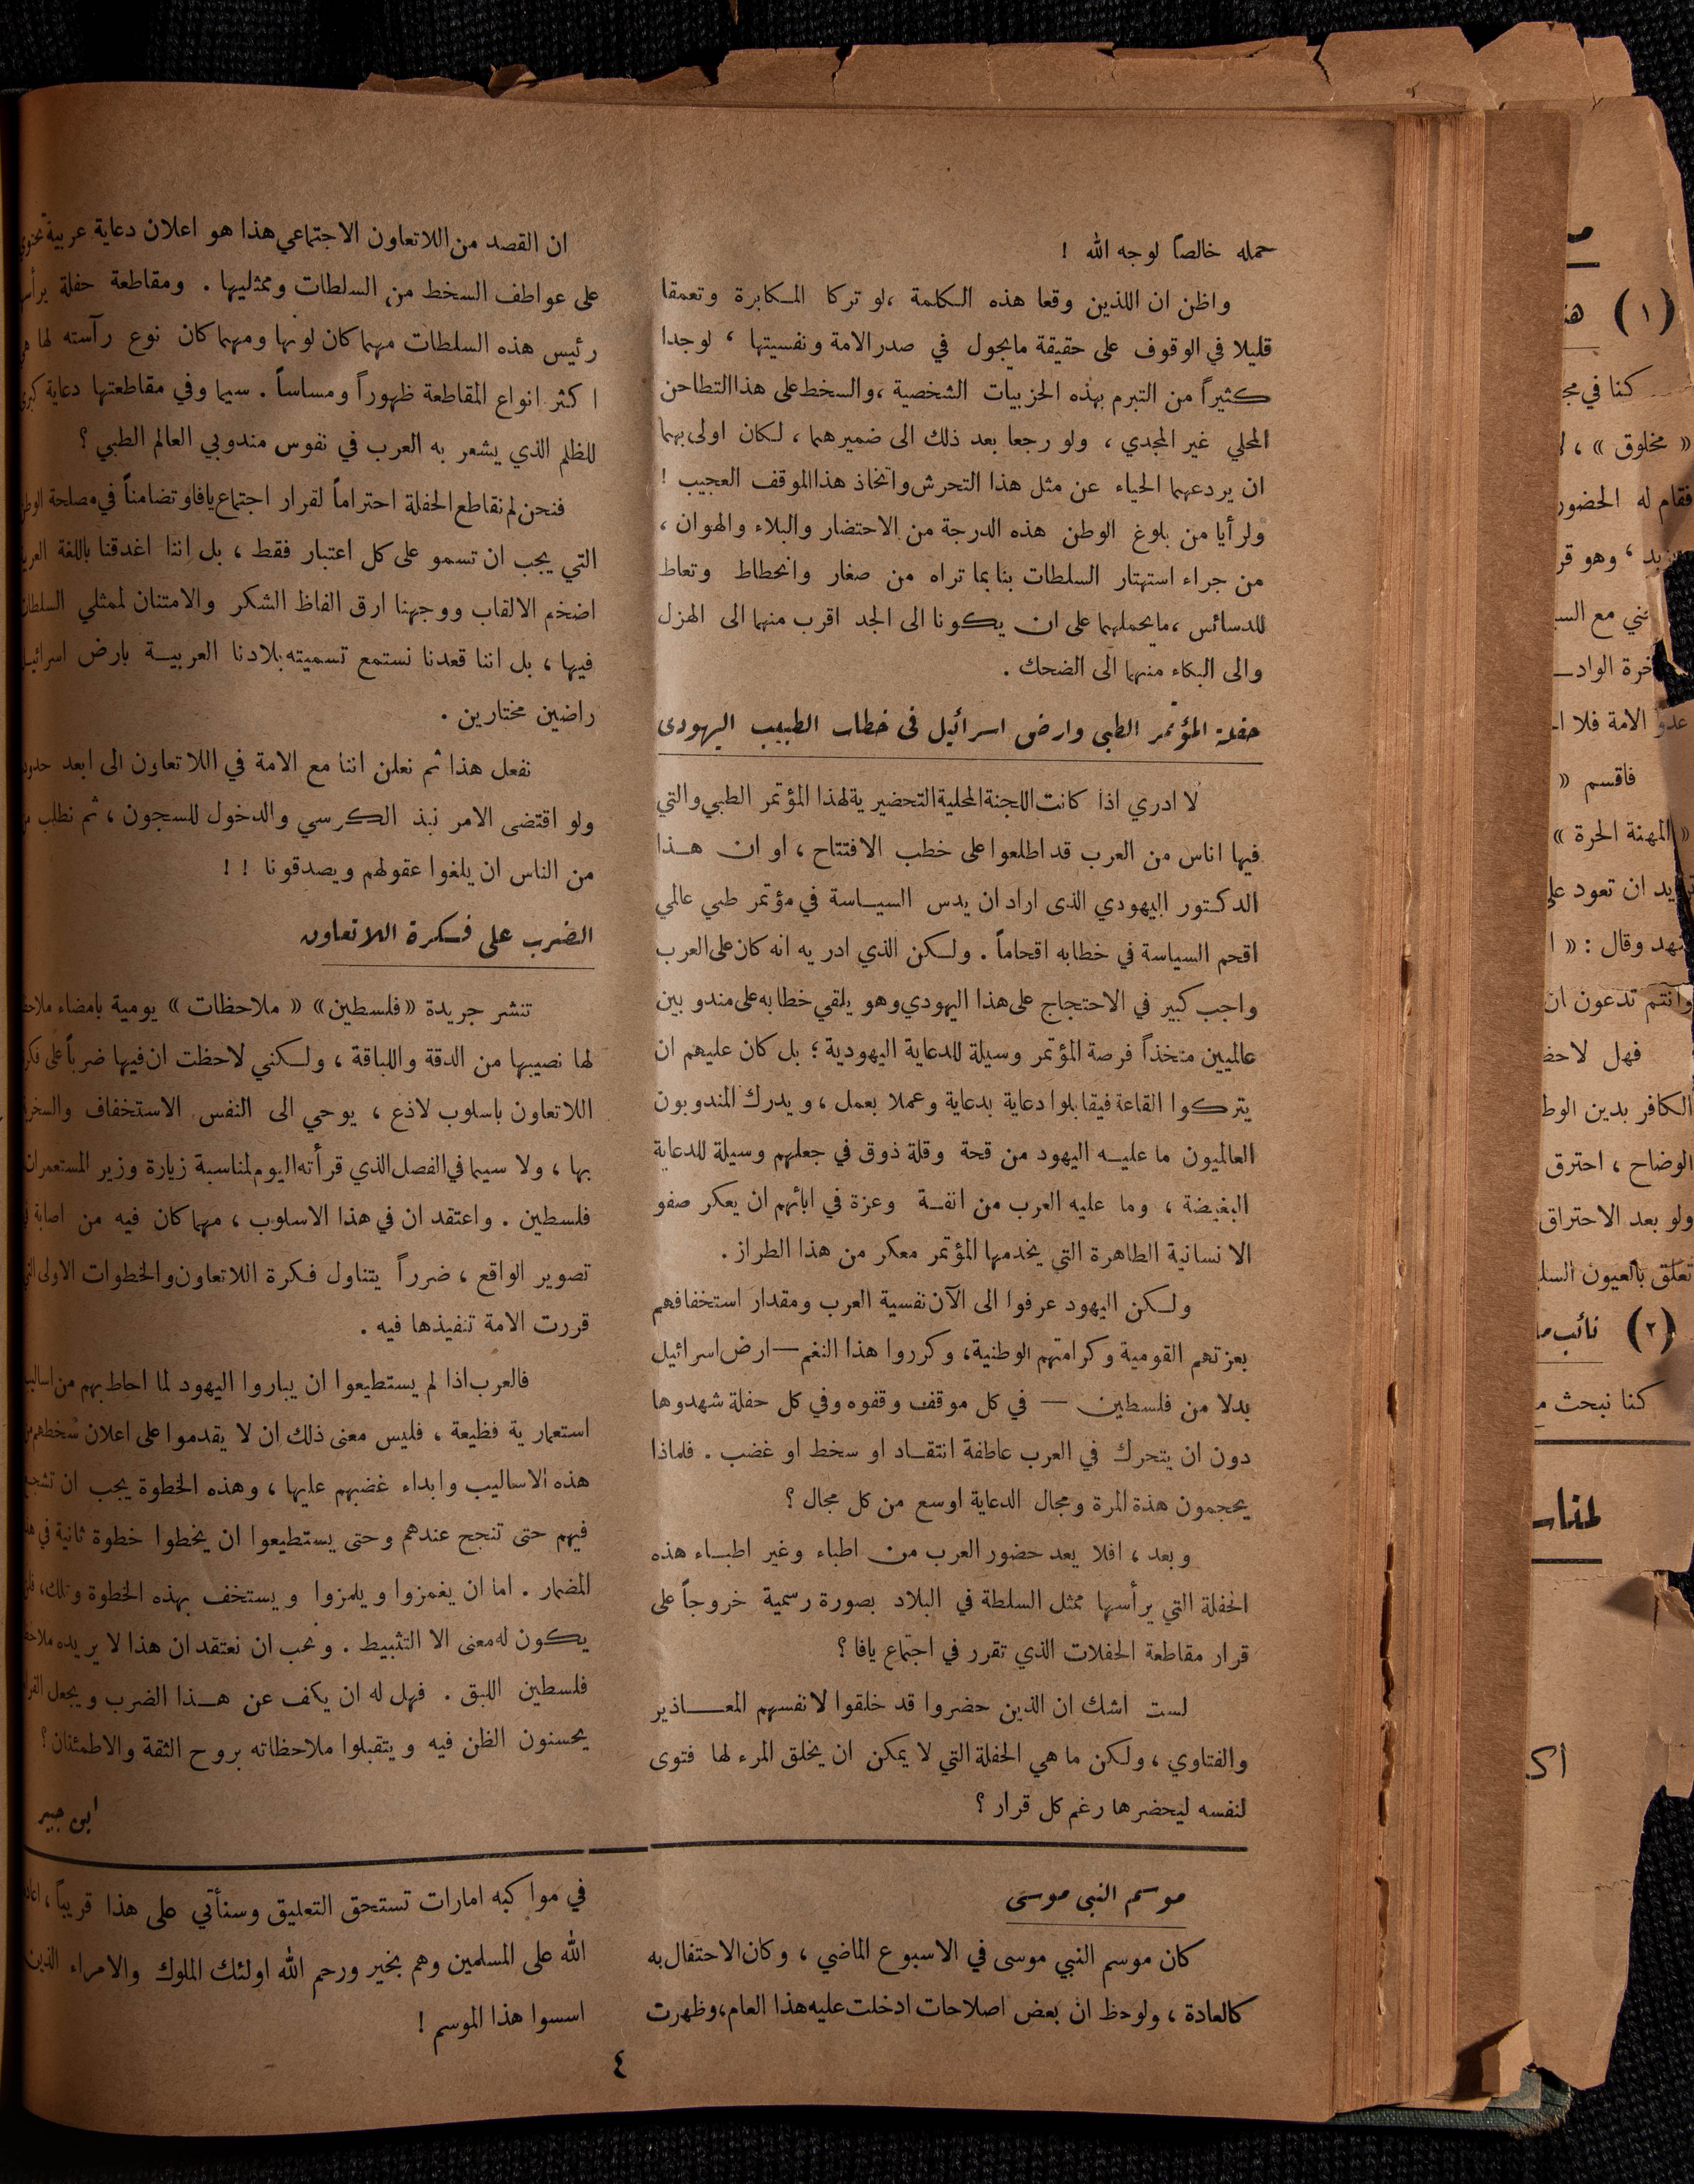 حمله خالصاً لوجه الله !
واظن ان اللذين وقعا هذه الكلمة ،لو تركا المكابرة وتعمقا
قليلا في الوقوف على حقيقة مايجول في صدر الامة ونفسيتها ، لوجدا
كثيراً من التبرم بهذه الحزبيات الشخصية ،والسخط على هذا التطاحن
المحلي غير المجدي ، ولو رجعا بعد ذلك الى ضميرهما ، لكان اولى بهما
ان يردعهما الحياء عن مثل هذا التحرش واتخاذ هذا الموقف العجيب !
ولرأيا من بلوغ الوطن هذه الدرجة من الاحتضار والبلاء والهوان ،
من جراء استهتار السلطات بنا بما تراه من صغار وانحطاط وتعاط
للدسائس ،مايحملهما على ان يكونا الى الجد اقرب منهما الى الهزل
والى البكاء منهما الى الضحك .
حفلة المؤتمر الطبي وارض اسرائيل في خطاب الطبيب اليهودى
لا ادري اذا كانت اللجنة المحلية التحضيرية لهذا المؤتمر الطبي والتي
فيها اناس من العرب قد اطلعوا على خطب الافتتاح ، او ان هذا
الدكتور اليهودي الذى اراد ان يدس السياسة في مؤتمر طبي عالمي
اقحم السياسة في خطابه اقحاماً . ولكن الذي ادريه انه كان على العرب
واجب كبير في الاحتجاج على هذا اليهودي وهو يلقي خطابه على مندوبين
عالميين متخذاً فرصة المؤتمر وسيلة للدعاية اليهودية ؛ بل كان عليهم ان
يتركوا القاعة فيقابلوا دعاية بدعاية وعملا بعمل ، ويدرك المندوبون
العالميون ما عليه اليهود من قحة وقلة ذوق في جعلهم وسيلة للدعاية
البغيضة ، وما عليه العرب من انفة وعزة في ابائهم ان يعكر صفو
الانسانية الطاهرة التي يخدمها المؤتمر معكر من هذا الطراز .
ولكن اليهود عرفوا الى الآن نفسية العرب ومقدار استخفافهم
بعزتهم القومية وكرامتهم الوطنية، وكرروا هذا النغم — ارض اسرائيل
بدلا من فلسطين — في كل موقف وقفوه وفي كل حفلة شهدوها
دون ان يتحرك في العرب عاطفة انتقاد او سخط او غضب . فلماذا
يحجمون هذة المرة ومجال الدعاية اوسع من كل مجال ؟
وبعد ، افلا يعد حضور العرب من اطباء وغير اطباء هذه
الحفلة التي يرأسها ممثل السلطة في البلاد بصورة رسمية خروجاً على
قرار مقاطعة الحفلات الذي تقرر في اجتماع يافا ؟
لست اشك ان الذين حضروا قد خلقوا لانفسهم المعاذير
والفتاوي ، ولكن ما هي الحفلة التي لا يمكن ان يخلق المرء لها فتوى
لنفسه ليحضرها رغم كل قرار ؟
ان القصد من اللاتعاون الاجتماعي هذا هو اعلان دعاية عربية تحتوي
على عواطف السخط من السلطات وممثليها . ومقاطعة حفلة يرأس
رئيس هذه السلطات مهما كان لونها ومهما كان نوع رآسته لها
اكثر انواع المقاطعة ظهوراً ومساساً . سيما وفي مقاطعتها دعاية كبرى
للظلم الذي يشعر به العرب في نفوس مندوبي العالم الطبي ؟
فنحن لم نقاطع الحفلة احتراماً لقرار اجتماع يافا وتضامناً في مصلحة
التي يجب ان تسمو على كل اعتبار فقط ، بل اننا اغدقنا باللغة
اضخم الالقاب ووجهنا ارق الفاظ الشكر والامتنان لممثلي
فيها ، بل اننا قعدنا نستمع تسميته بلادنا العربية بارض
راضين مختارين .
نفعل هذا ثم نعلن اننا مع الامة في اللاتعاون الى ابعد
ولو اقتضى الامر نبذ الكرسي والدخول للسجون ، ثم نطلب
من الناس ان يلغوا عقولهم ويصدقونا ! !
الضرب على فكرة اللاتعاون
تنشر جريدة « فلسطين » « ملاحظات » يومية بامضاء
لها نصيبها من الدقة واللباقة ، ولكني لاحظت ان فيها ضرباً على
اللاتعاون باسلوب لاذع ، يوحي الى النفس الاستخفاف
بها ، ولا سيما في الفصل الذي قرأته اليوم لمناسبة زيارة وزير
فلسطين . واعتقد ان في هذا الاسلوب ، مهما كان فيه من اصابة
تصوير الواقع ، ضرراً يتناول فكرة اللاتعاون والخطوات الاولى
قررت الامة تنفيذها فيه .
فالعرب اذا لم يستطيعوا ان يباروا اليهود لما احاط بهم من
استعمارية فظيعة ، فليس معنى ذلك ان لا يقدموا على اعلان
هذه الاساليب وابداء غضبهم عليها ، وهذه الخطوة يجب ان
فيهم حتى تنجح عندهم وحتى يستطيعوا ان يخطوا خطوة ثانية في
المضمار . اما ان يغمزوا ويلمزوا ويستخف بهذه الخطوة وتلك،
يكون له معنى الا التثبيط . ونحب ان نعتقد ان هذا لا يريده
فلسطين اللبق . فهل له ان يكف عن هذا الضرب ويجعل
يحسنون الظن فيه ويتقبلوا ملاحظاته بروح الثقة والاطمئنان ؟
ابن جبير
موسم النبي موسى
كان موسم النبي موسى في الاسبوع الماضي ، وكان الاحتفال به
كالعادة ، ولوحظ ان بعض اصلاحات ادخلت عليه هذا العام،وظهرت
في مواكبه امارات تستحق التعليق وسنأتي على هذا قريباً ،
الله على المسلمين وهم بخير ورحم الله اولئك الملوك والامراء
اسسوا هذا الموسم !
٤
(١)
كنا في
« مخلوق » ،
فقام له الحضور
وهو
مع
عدو الامة فلا
فاقسم «
« المهنة الحرة »
ان تعود
وقال : «
وانتم تدعون ان
فهل
الكافر بدين
الوضاح ، احترق
ولو بعد الاحتراق
تعلق بالعيون
(٢) نائب
كنا نبحث